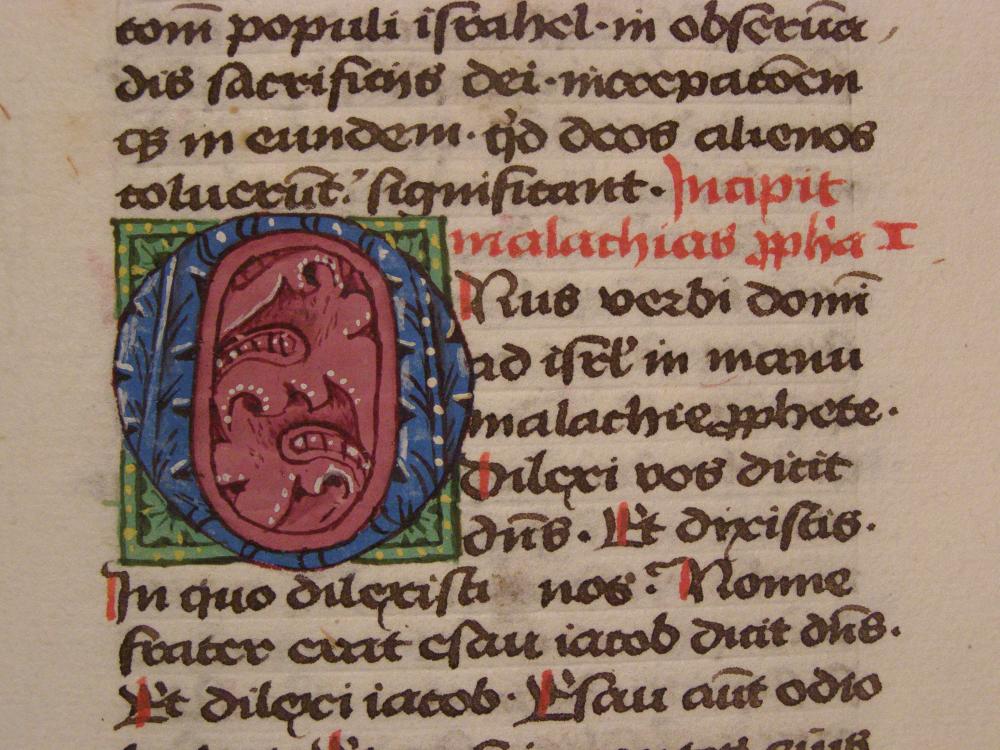 tom̄ populi israhel · in obserua
dis sacrificijs dei · increpatōem
qꝫ in eundem · qd deos alienos
coluerūt : significant · Incipit
malachias ꝓpha I
ONus verbi domī
ad isrl̄ in manu
malachie ꝓphete ·
Dilexi vos dicit
dn̄s · Et dixistis ·
In quo dilexisti nos : Nonne
frater erat esau iacob dicit dn̄s ·
Et dilexi iacob · Esau aūt odio